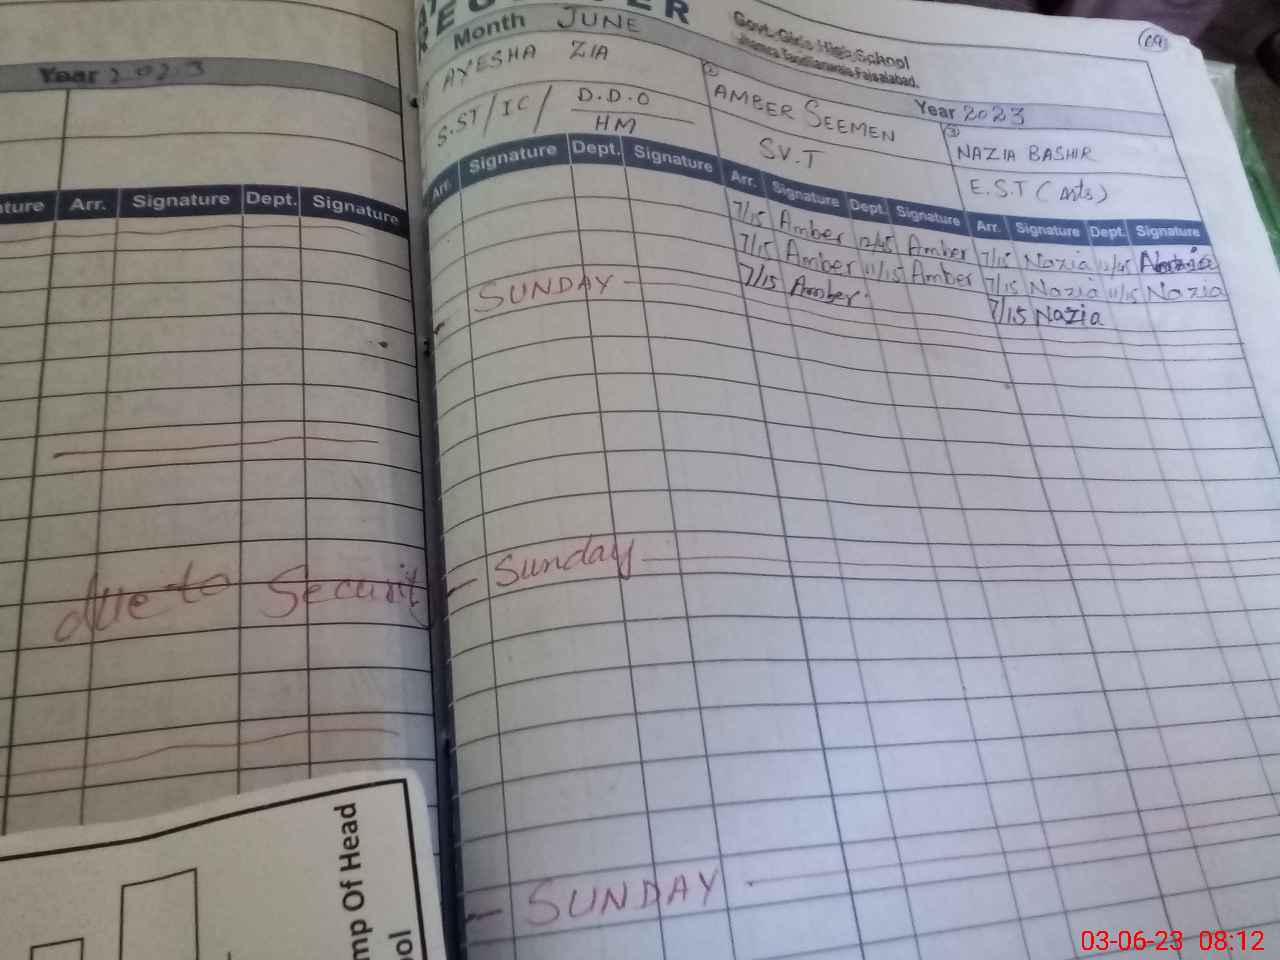 Year 2023
Arr. Signature Dept. Signature
due to Securit
mp Of Head
ool
Month JUNE
Govt. Girls High School
Jhamra Tandlianwala Faisalabad.
69
Year 2023
AYESHA ZIA
S.ST/IC/ D.D.O
HM
AMBER SEEMEN
SV.T
NAZIA BASHIR
E.S.T (Arts)
Arr. Signature Dept. Signature Arr. Signature Dept. Signature Arr. Signature Dept. Signature
7/15 Amber 12/45 Amber 7/15 Nazia 12/45 Nazia
7/15 Amber 11/15 Amber 7/15 Nazia 11/15 Nazia
7/15 Amber 7/15 Nazia
SUNDAY
Sunday
SUNDAY
03-06-23 08:12